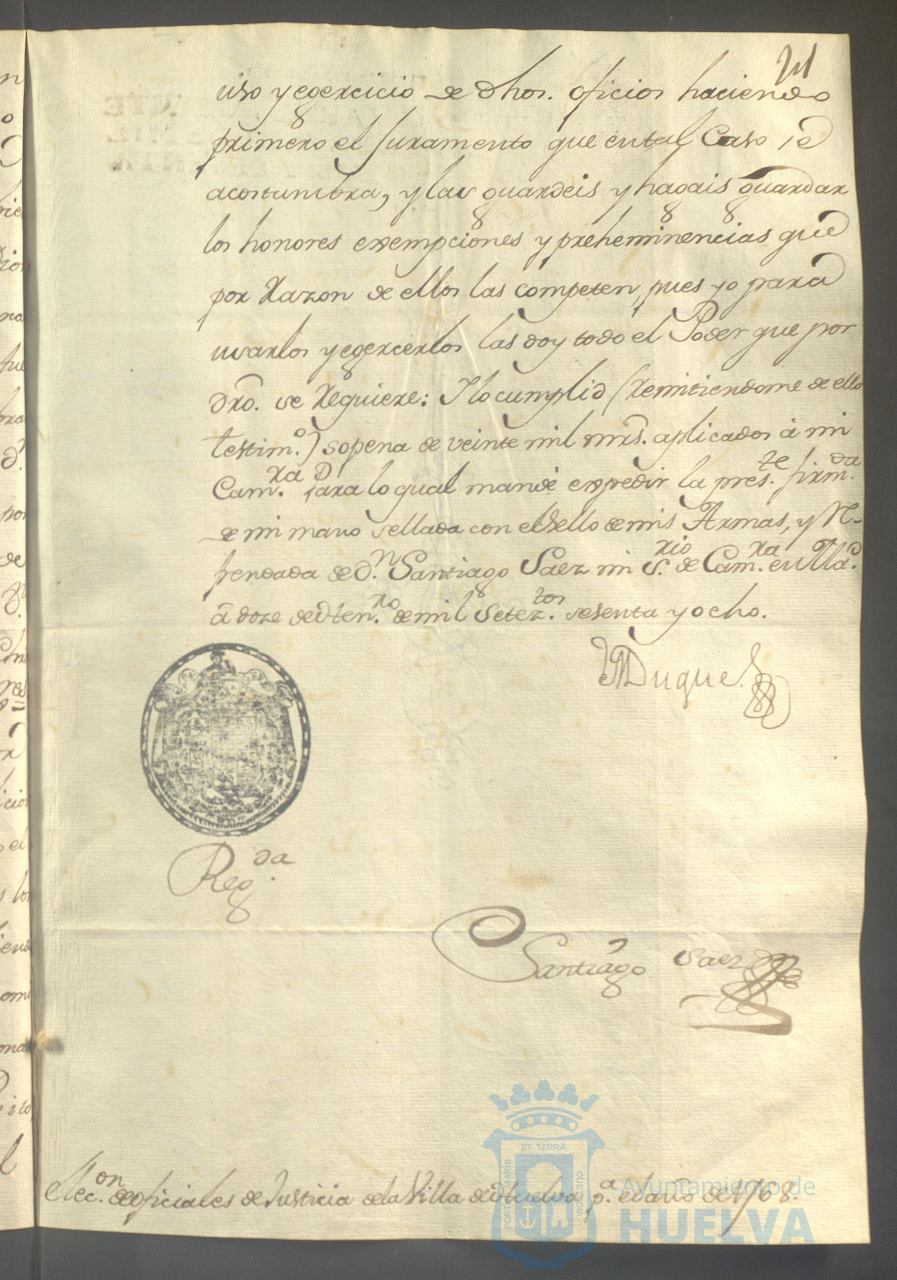 21
uso y egercicio de dhos. oficios haciendo
primero el Juramento que en tal Caso se
acostumbra, y las guardeis y hagais guardar
los honores exempciones y preheminencias que
por razon de ellos las competen, pues yo para
usarlos y egercerlos las doy todo el Poder que por
dro. se requiere: Y lo cumplid (remitiendome de ello
testimo.) so pena de veinte mil mrs. aplicados á mi
Cam.ra Para lo qual mandé expedir la pres.te firm.da
de mi mano sellada con el sello de mis Armas, y re-
frendada de d.n Santiago Saez mi S.rio de Cam.ra en
á doze de de mil Setez.tos sesenta y ocho.
Duque
Reg.da
Santiago Saez
Elec.on de oficiales de Justicia de la Villa de Huelva p.a el año de 1768.
ET TERRAE
PORTUS MARIS
CUSTODIA
Ayuntamiento de
HUELVA